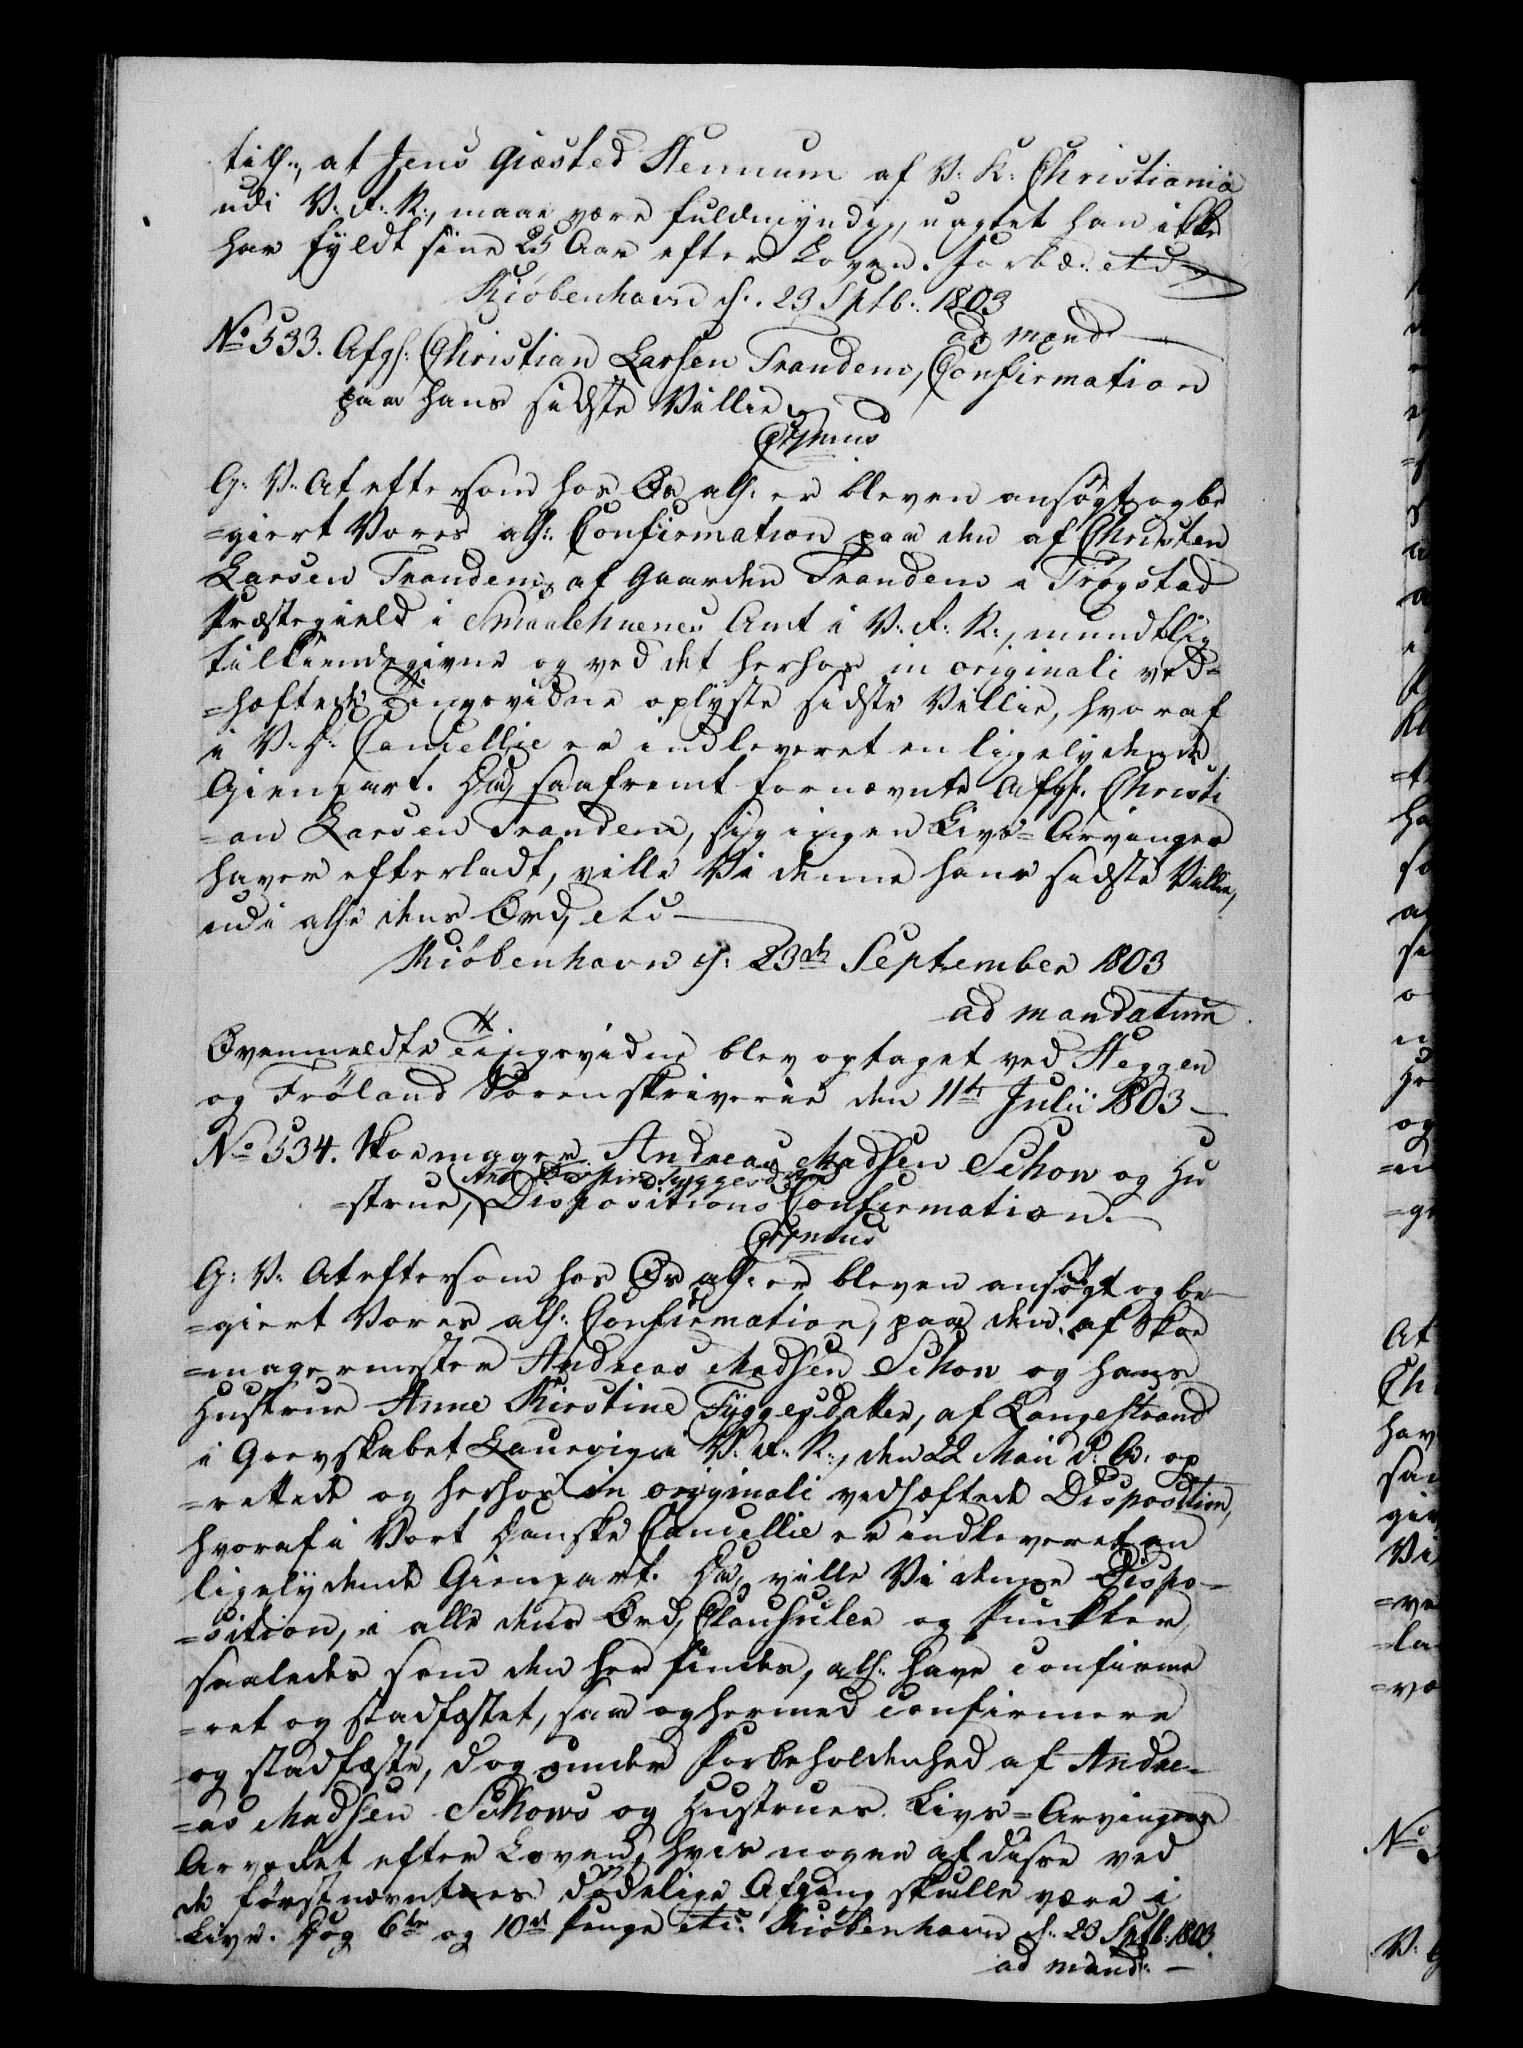 till:, at Jens Giæsted Hennum af V: K: Christiania
udi V: R: R:, maae være fuldmyndig, uagtet han ikke
har fyldt sine 25 Aar efter Loven. Forbd: etc
Kiöbenhavn d: 23 Sptb: 1803
ad mand:
No 533. Afg: Christian Larsen Trandem, Confirmation
paa hans sidste Villie.
C: 7mus
G: V: At eftersom hos Os all: er bleven ansögt og be
=giert Vores all: Confirmation paa den af Christen
Larsen Trandem, af Gaarden Trandem i Trögstad
Præstegield i Smaalehnenes Amt i V: R: R:, mundtlig
tilkiendegivne og ved det herhos in originali ved=
=hæftede Tingsvidne oplyste sidste Villie, hvoraf
i V: D: Cancellie er indleveret en ligelydende
Gienpart. Da, saafremt fornævnte Afg: Christi
=an Larsen Trandem, sig ingen Livs=Arvinger
haver efterladt, ville Vi denne hans sidste Villie,
udi alle dens Ord, etc
Kiöbenhavn d: 23de September 1803
ad mandatum
Ovenmeldte Tingsvidne blev optaget ved Heggen
og Fröland Sorenskriverie den 11te Julii 1803
No 534. Skoemager Andreas Madsen Schow og Hu
Anne Kirstine Tyggesdatter
=strue, Dispositions Confirmation.
C: 7mus
G: V: At eftersom hos Os all: er bleven ansögt og be
=giert Vores all: Confirmation, paa den af Skoe
=magermester Andreas Madsen Schow og hans
Hustrue Anne Kirstine Tyggesdatter, af Langestrand
i Grevskabet Laurvig i V: R: R:, den 22 Maii d: A: op
=rettede og herhos in originali vedhæftede Disposition,
hvoraf i Vort Danske Cancellie er indleveret en
ligelydende Gienpart. Da, ville Vi denne Dispo=
=sition, i alle dens Ord, Clausuler og Puncter,
saaledes som den her findes, all: have confirme
=ret og stadfæstet, saa og hermed confirmere
og stadfæste, dog under Forbeholdenhed af Andre=
=as Madsen Schows og Hustrues Livs=Arvinger
Arvedel efter Loven, hvis nogen af disse ved
de förstnævntes dödelige Afgang skulle være i
Live. Dog 6te og 10de Penge etc: Kiöbenhavn d: 23 Sptb: 1803.
ad mand: